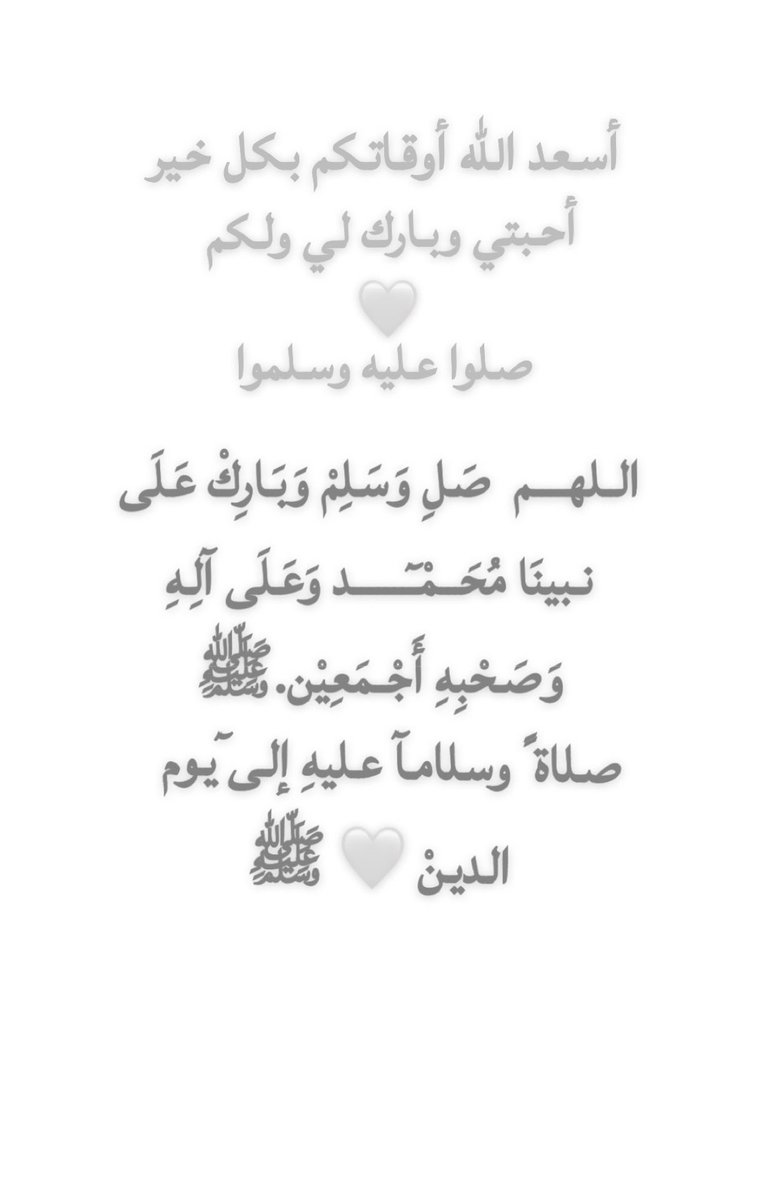 أسعد الله أوقاتكم بكل خير
أحبتي وبارك لي ولكم
🤍
صلوا عليه وسلموا
الــلهــــم صَلِ وَسَلِمْ وَبَارِكْ عَلَى
نـبينَا مُحَــمْــۤـــد وَعَلَى آلِهِ
وَصَحْبِهِ أَجْمَعِيْن.ﷺ
صلاة ً وسلامآ عليهِ إلى ۤيوم
الدينْ 🤍 ﷺ